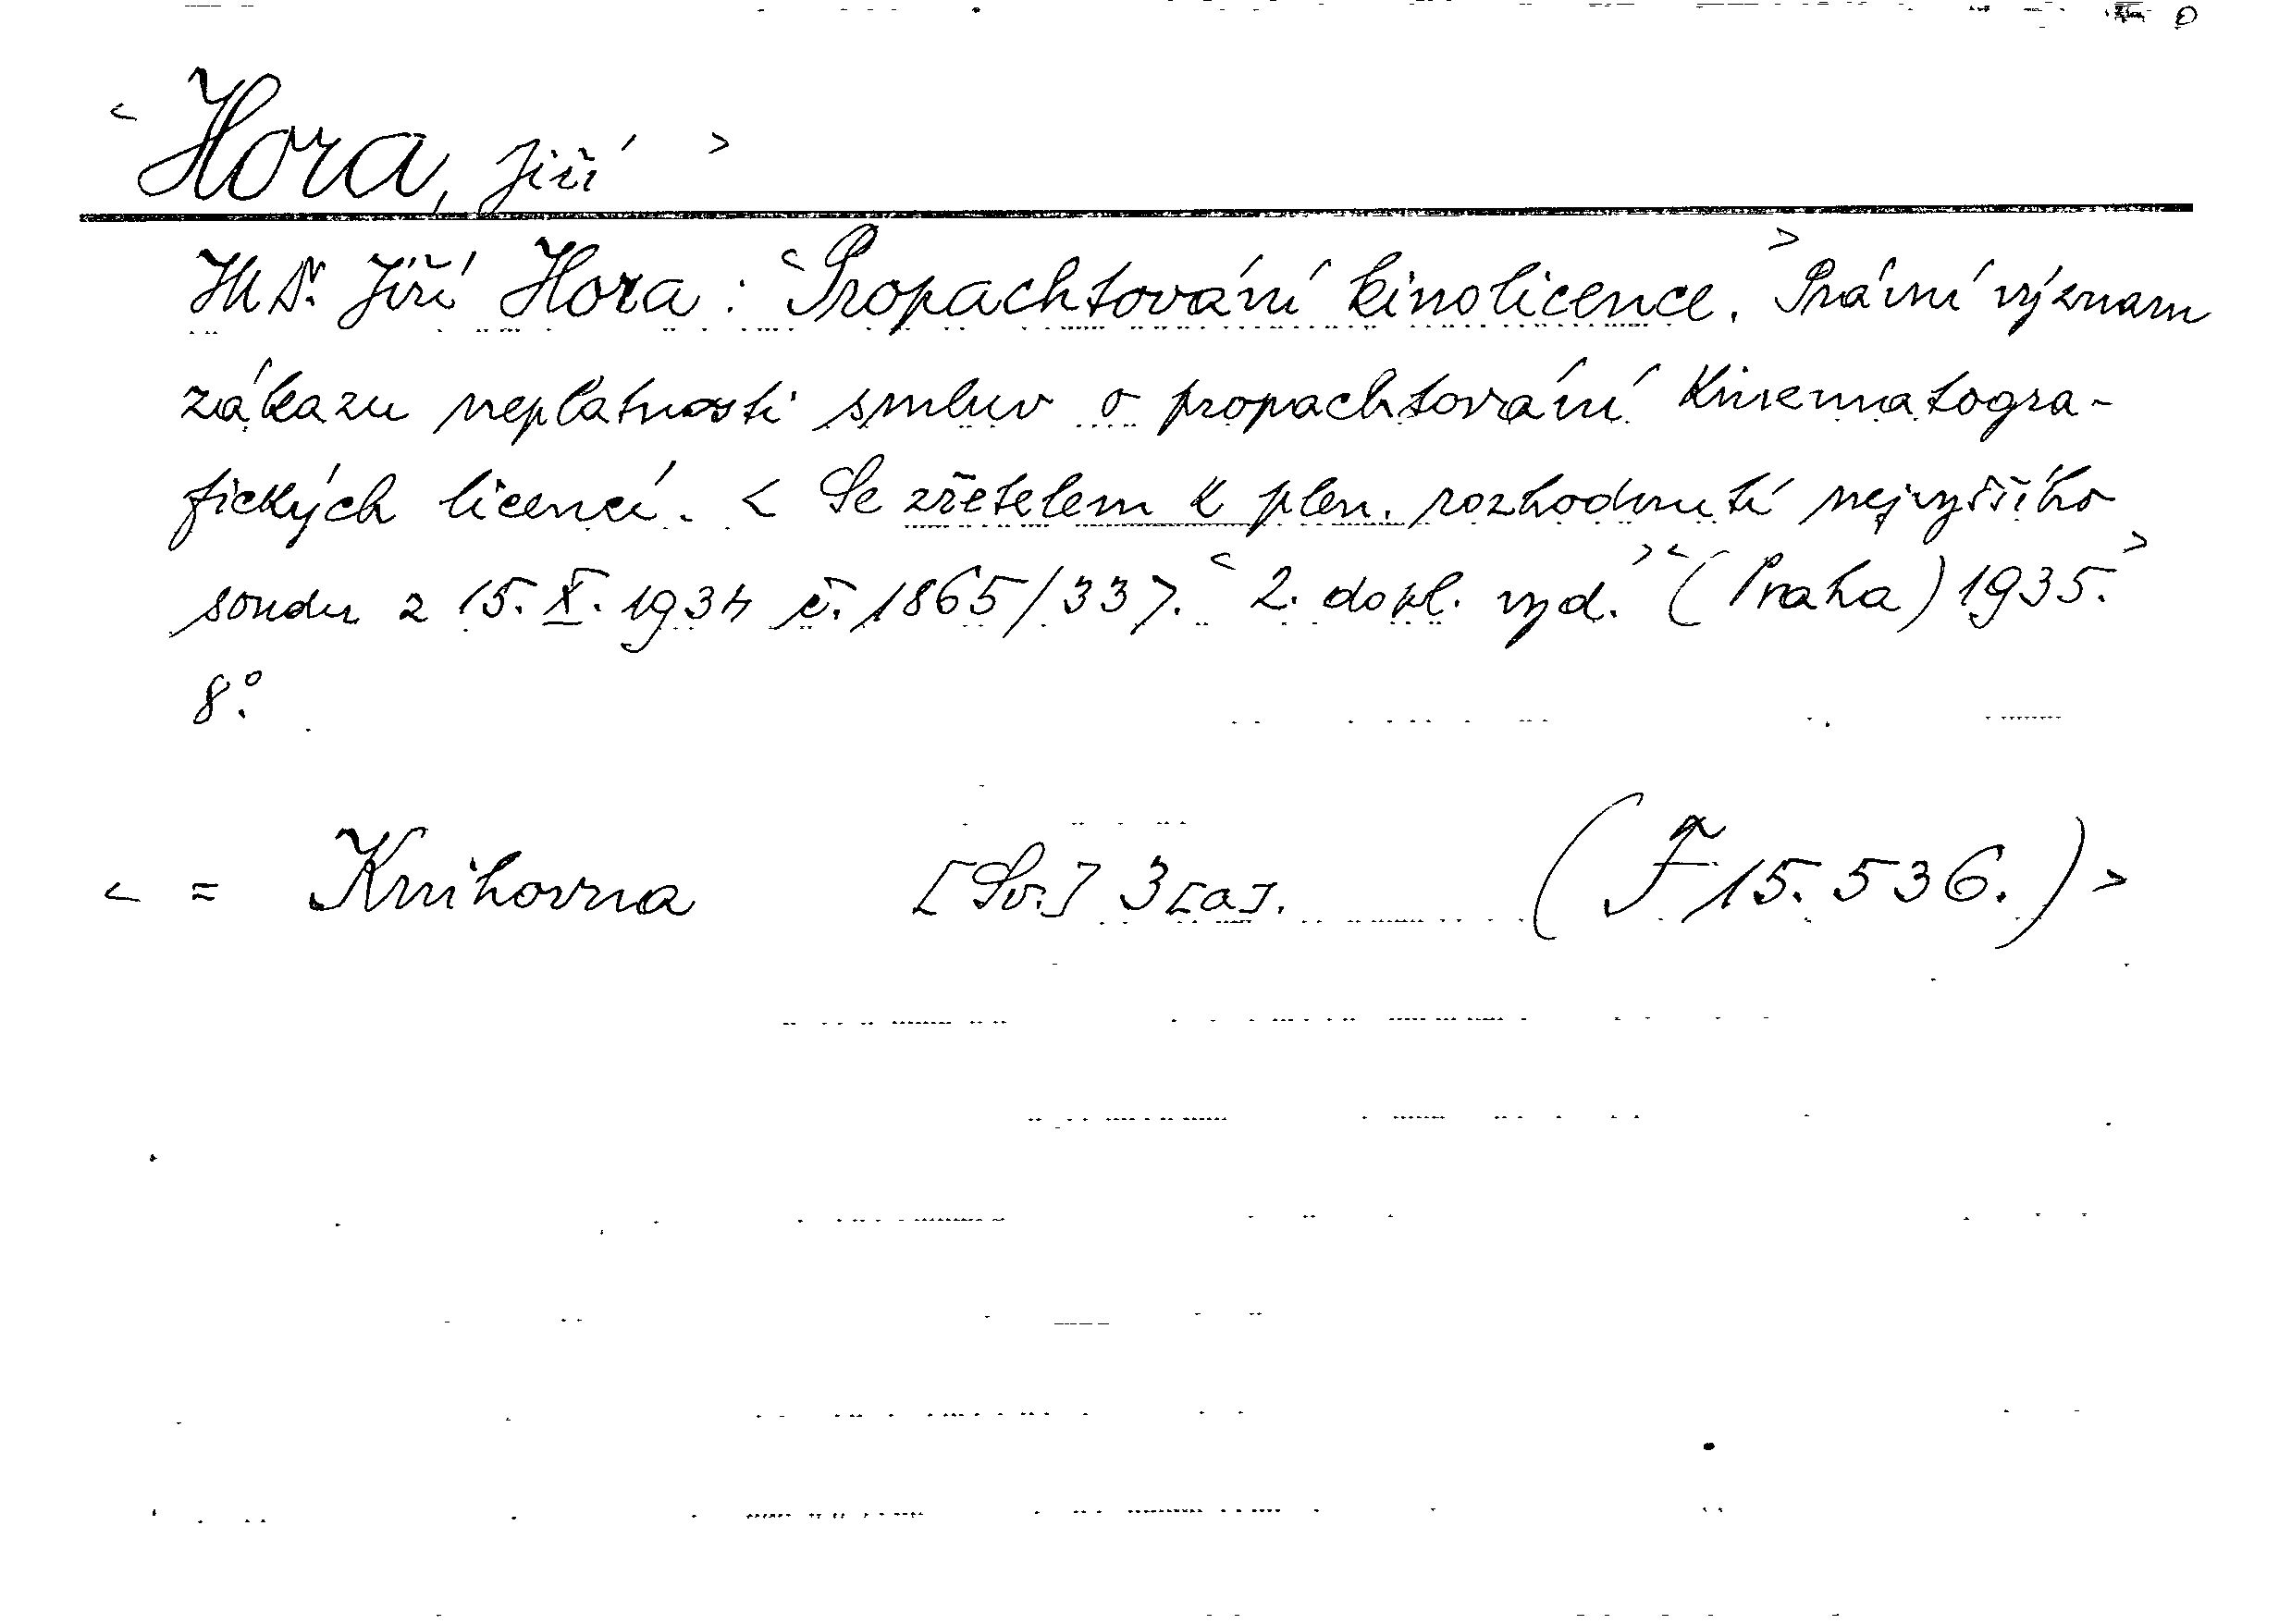 < Hora, Jiří >
JUDr. Jiří Hora : < Propachtování kinolicence. > Právní význam
zákazu neplatnosti smluv o propachtování kinematogra-
fických licencí. < Se zřetelem k plen. rozhodnutí nejvyššího
soudu z 15. X. 1934 č. 1865/33 >. < 2. dopl. vyd. > < (Praha) 1935. >
8°.
< = Knihovna [Sv.] 3[a]. (F 15.536.) >